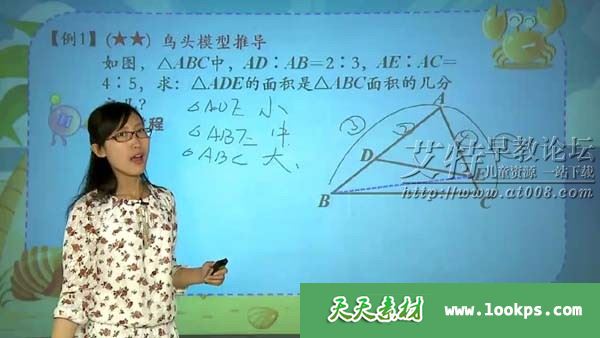 【例1】(★★) 鸟头模型推导
如图，△ABC中，AD：AB=2：3，AE：AC=
4：5，求：△ADE的面积是△ABC面积的几分
之几？
△ADE 小
程
△ABE 中
△ABC 大
③
②
A
D
B
C
艾特早教论坛
儿童资源 一站下载
http://www.at008.com
天天素材 www.lookps.com